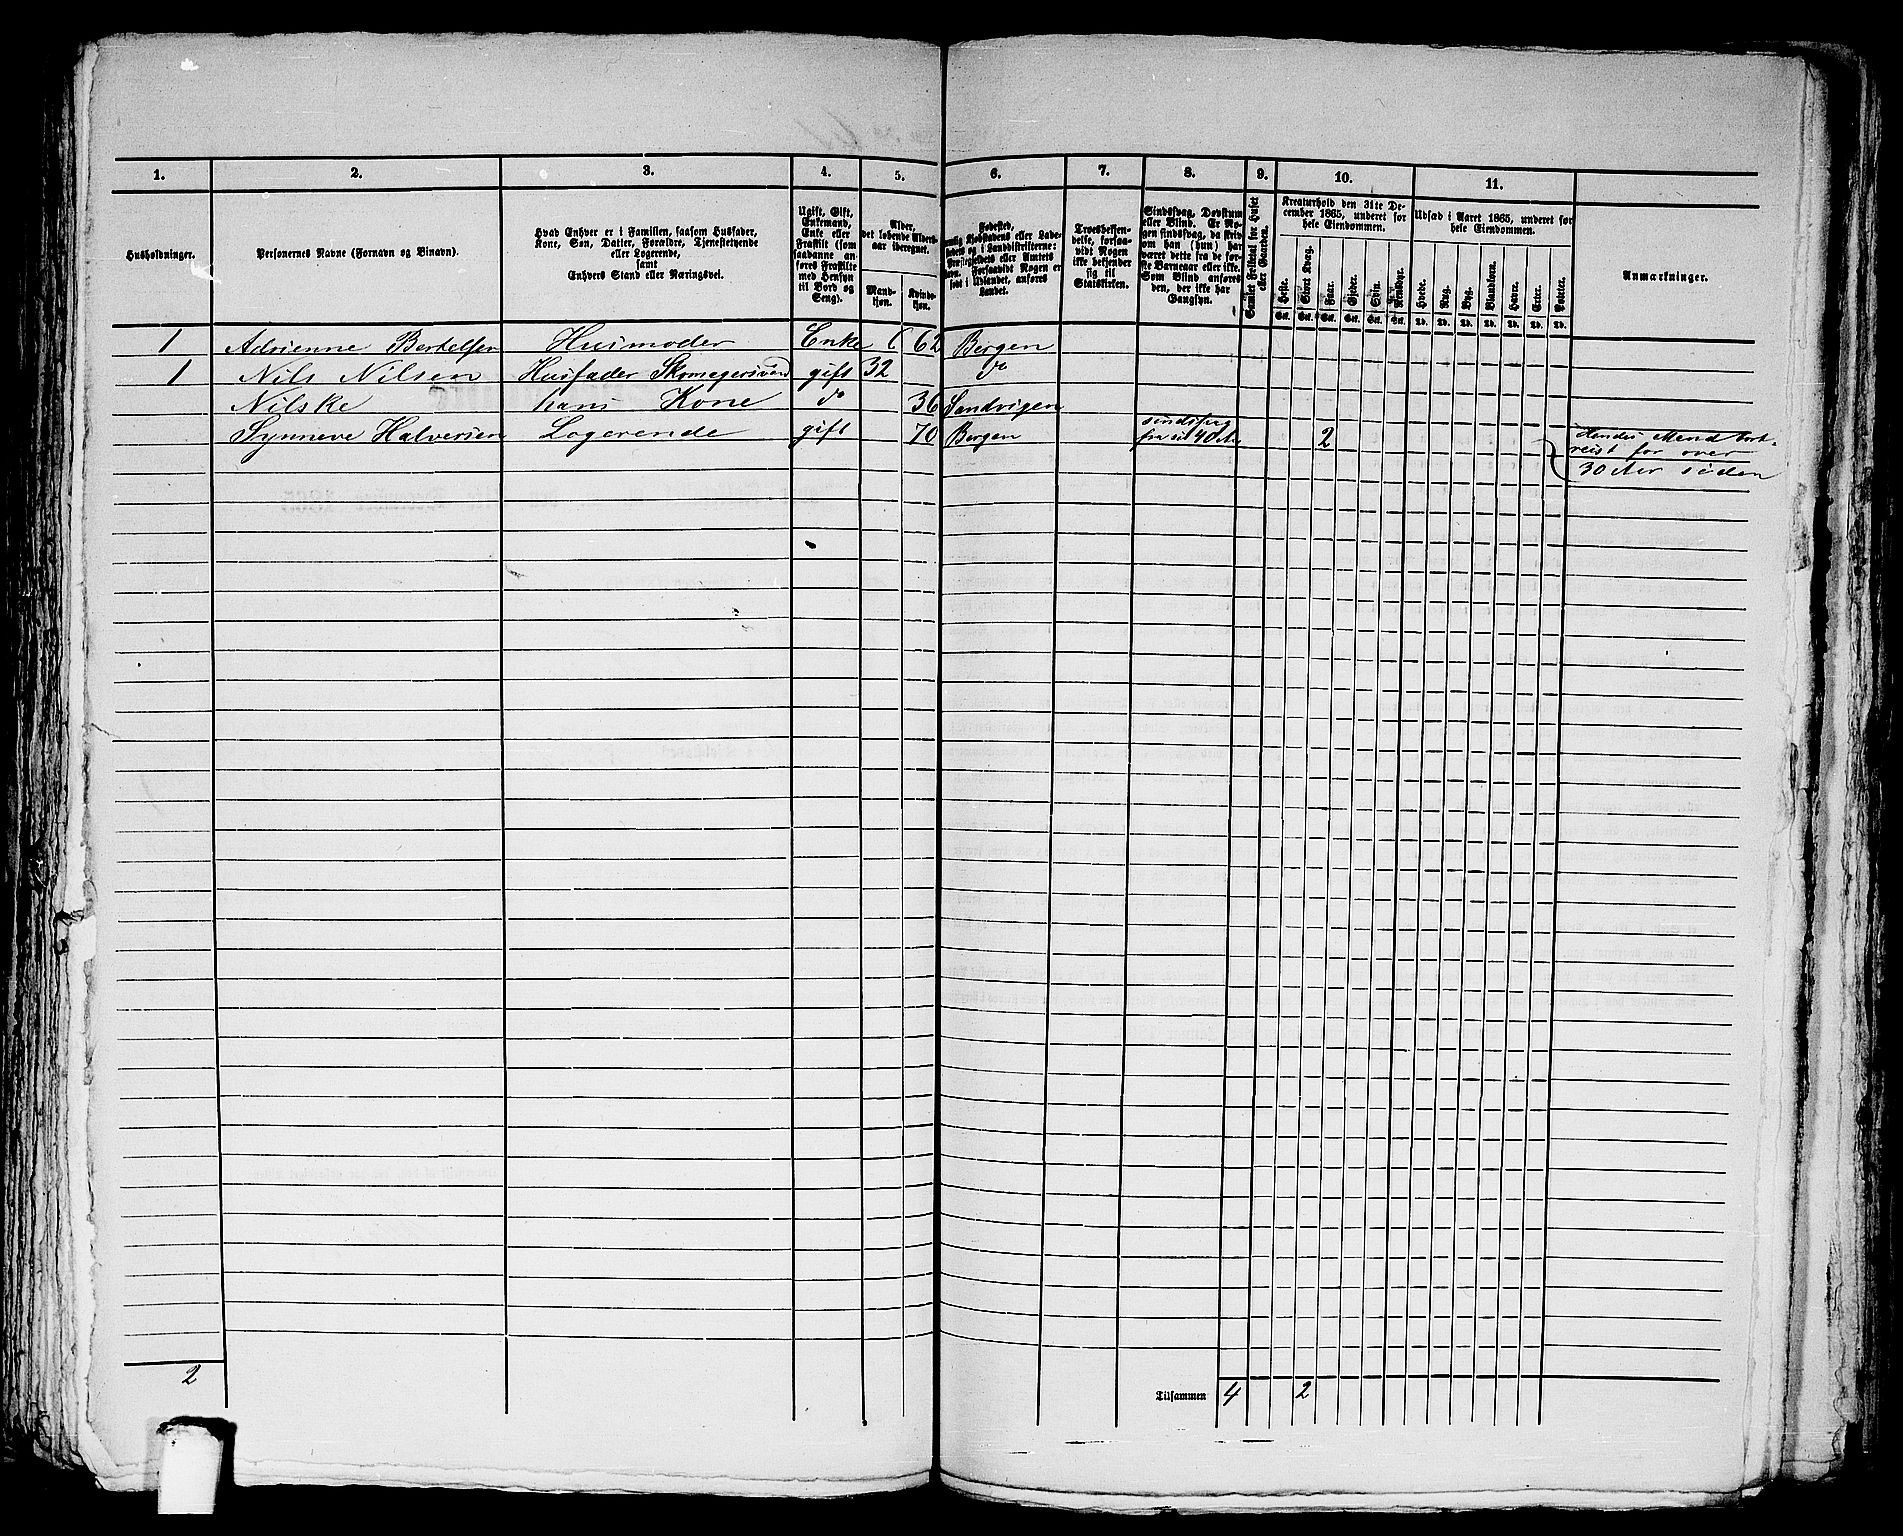 1. 2. 3. 4. 5. 6. 7. 8. 9. 10. 11.
Husholdninger.
Personernes Navne (Fornavn og Binavn).
Hvad Enhver er i Familien, saasom Husfader,
Kone, Søn, Datter, Forældre, Tjenestetyende
eller Logerende,
samt
Enhvers Stand eller Næringsvei.
Ugift, Gift,
Enkemand,
Enke eller
Fraskilt (som
saadanne an-
føres Fraskilte
med Hensyn
til Bord og
Seng).
Alder,
det løbende Alders-
aar iberegnet.
Mand-
kjøn.
Kvinde-
kjøn.
Fødested,
Troesbekjen-
delse, forsaa-
vidt Nogen
ikke bekjender
sig til
Statskirken.
Sindssvag, Døvstum
eller Blind. Er No-
gen sindssvag, da skriv
om han (hun) har
været dette fra de før-
ste Barneaar eller ikke.
Som Blind anføres
den, der ikke har
Gangsyn.
Samlet Folketal for Huset
eller Gaarden.
Kreaturhold den 31te De-
cember 1865, underet for
hele Eiendommen.
Heste.
Stort Kvæg.
Faar.
Gjeder.
Svin.
Rensdyr.
Udsæd i Aaret 1865, underet for
hele Eiendommen.
Hvede.
Rug.
Byg.
Blandkorn.
Havre.
Erter.
Poteter.
Anmærkninger.
1 Adrienne Bertelsen Husmoder Enke 62 Bergen
1 Nils Nilsen Husfader Skomagersvend gift 32 do
Nilske hans Kone do 36 Sandvigen
Synneve Halversen Logerende gift 70 Bergen 2
Hendes Mand bort-
reist for over
30 Aar siden
2
Tilsammen 4 2